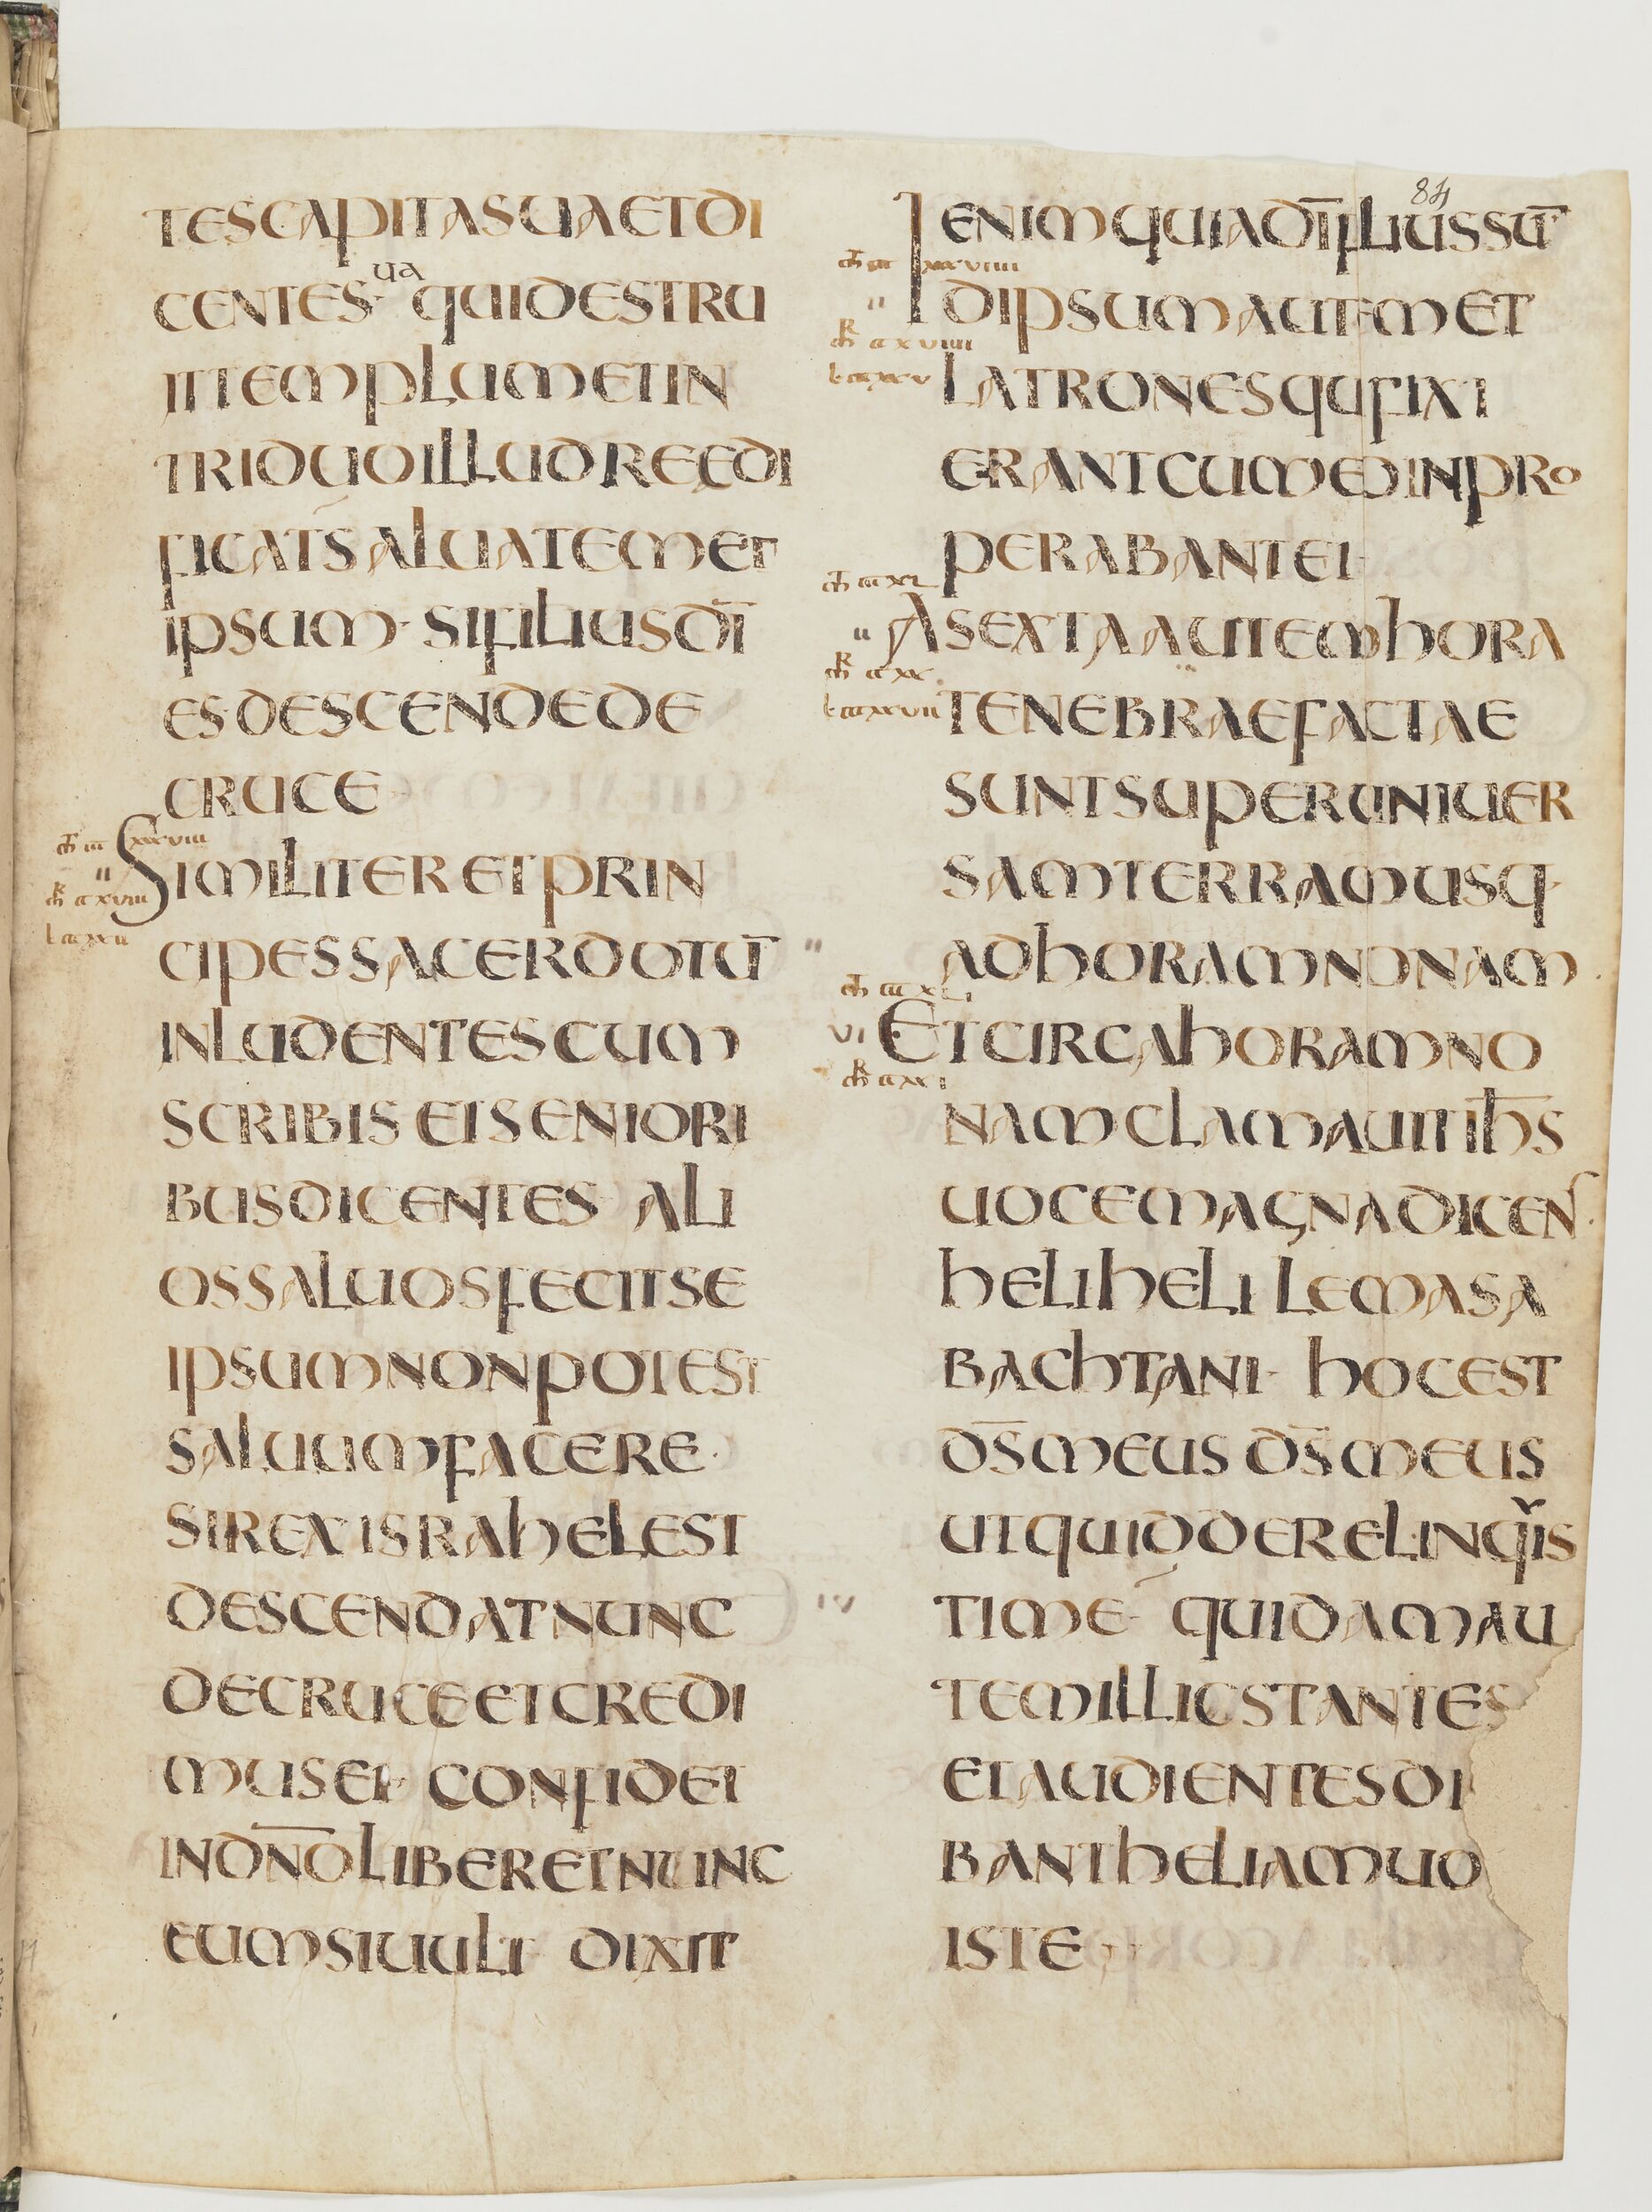 84
TESCAPITASUAETDI
CENTES· UA QUIDESTRU
ITTEMPLUMETIN
TRIDUOILLUDREEDI
FICATSALUATEMET
IPSUM· SIFILIUSDĪ
ESDESCENDEDE
CRUCE
SIMILITERETPRIN
CIPESSACERDOTŪ
INLUDENTESCUM
SCRIBISETSENIORI
BUSDICENTES ALI
OSSALUOSFECITSE
IPSUMNONPOTEST
SALUUMFACERE·
SIREXISRAHELEST
DESCENDATNUNC
DECRUCEETCREDI
MUSEI· CONFIDET
INDN̄OLIBERETNUNC
EUMSIUULT DIXIT
ENIMQUIADĪFILIUSSŪ
IDIPSUMAUTEMET
LATRONESQUIFIXI
ERANTCUMEOINPRO
PERABANTEI·
ASEXTAAUTEMHORA
TENEBRAEFACTAE
SUNTSUPERUNIUER
SAMTERRAMUSQ·
ADHORAMNONAM
VI ETCIRCAHORAMNO
NAMCLAMAUITIH̄S
UOCEMAGNADICENS
HELIHELILEMASA
BACHTANI· HOCEST
DS̄MEUSDS̄MEUS
UTQUIDDERELINQIS
TIME· QUIDAMAU
TEMILLICSTANTES
ETAUDIENTESDI
BANTHELIAMUO
ISTE